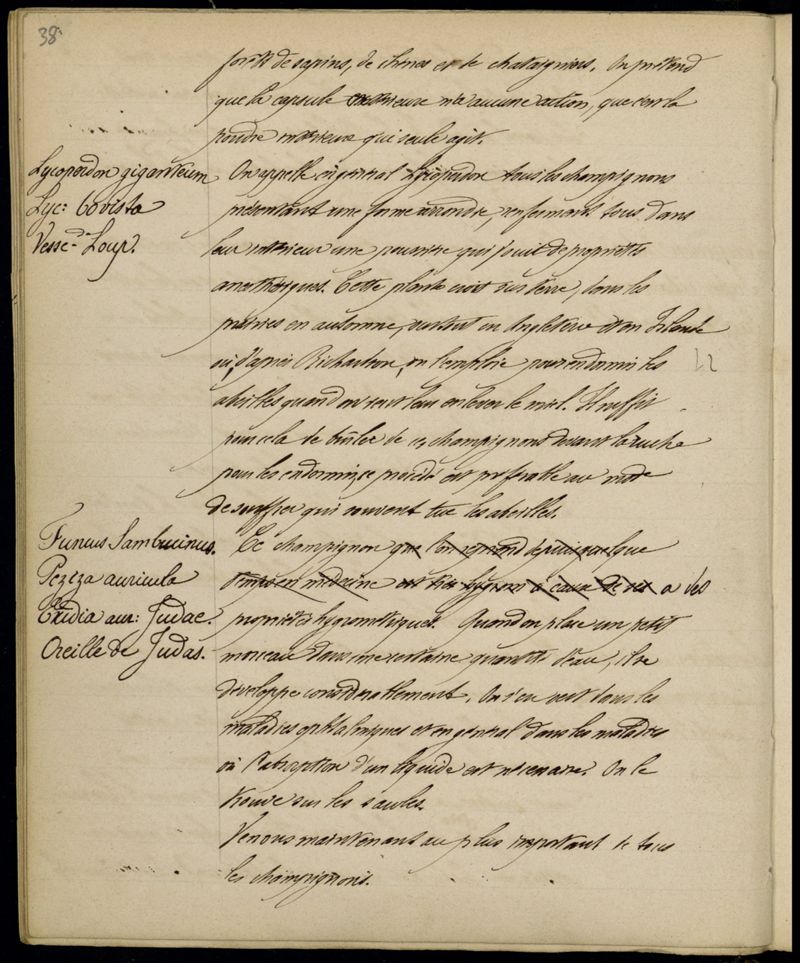 38
forêts de sapins, de chênes et de chataigniers. On prétend
que la capsule extérieure n'a aucune action, que c'est la
poudre intérieure qui seule agit.
Lycoperdon giganteum
Lyc: bovista
Vesse-de-Loup.
On appelle en général Lycoperdon tous les champignons
présentant une forme arrondie, renfermant tous dans
leur intérieur une poussière qui jouit de propriétés
anesthésiques. Cette plante croit sur terre, dans les
prairies en automne, surtout en Angleterre et en Irlande
où, d'après Richardson, on l'emploie pour endormir les
abeilles quand on veut leur enlever le miel. Il suffit
pour cela de brûler de ces champignons devant la ruche
pour les endormir; ce procédé est préférable au mode
de souffrer qui souvent tue les abeilles.
Funcus Sambucinus.
Peziza auricula
Exidia aur: Judae.
Oreille de Judas.
Ce champignon que l'on reprend depuis quelque
temps en médecine est très hygros à cause de ses a des
propriétés hygrométriques. Quand on place un petit
morceau dans une certaine quantité d'eau, il se
développe considérablement. On s'en sert dans les
maladies ophtalmiques et en général dans les maladies
où l'absorption d'un liquide est nécessaire. On le
trouve sur les saules.
Venons maintenant au plus important de tous
les champignons.